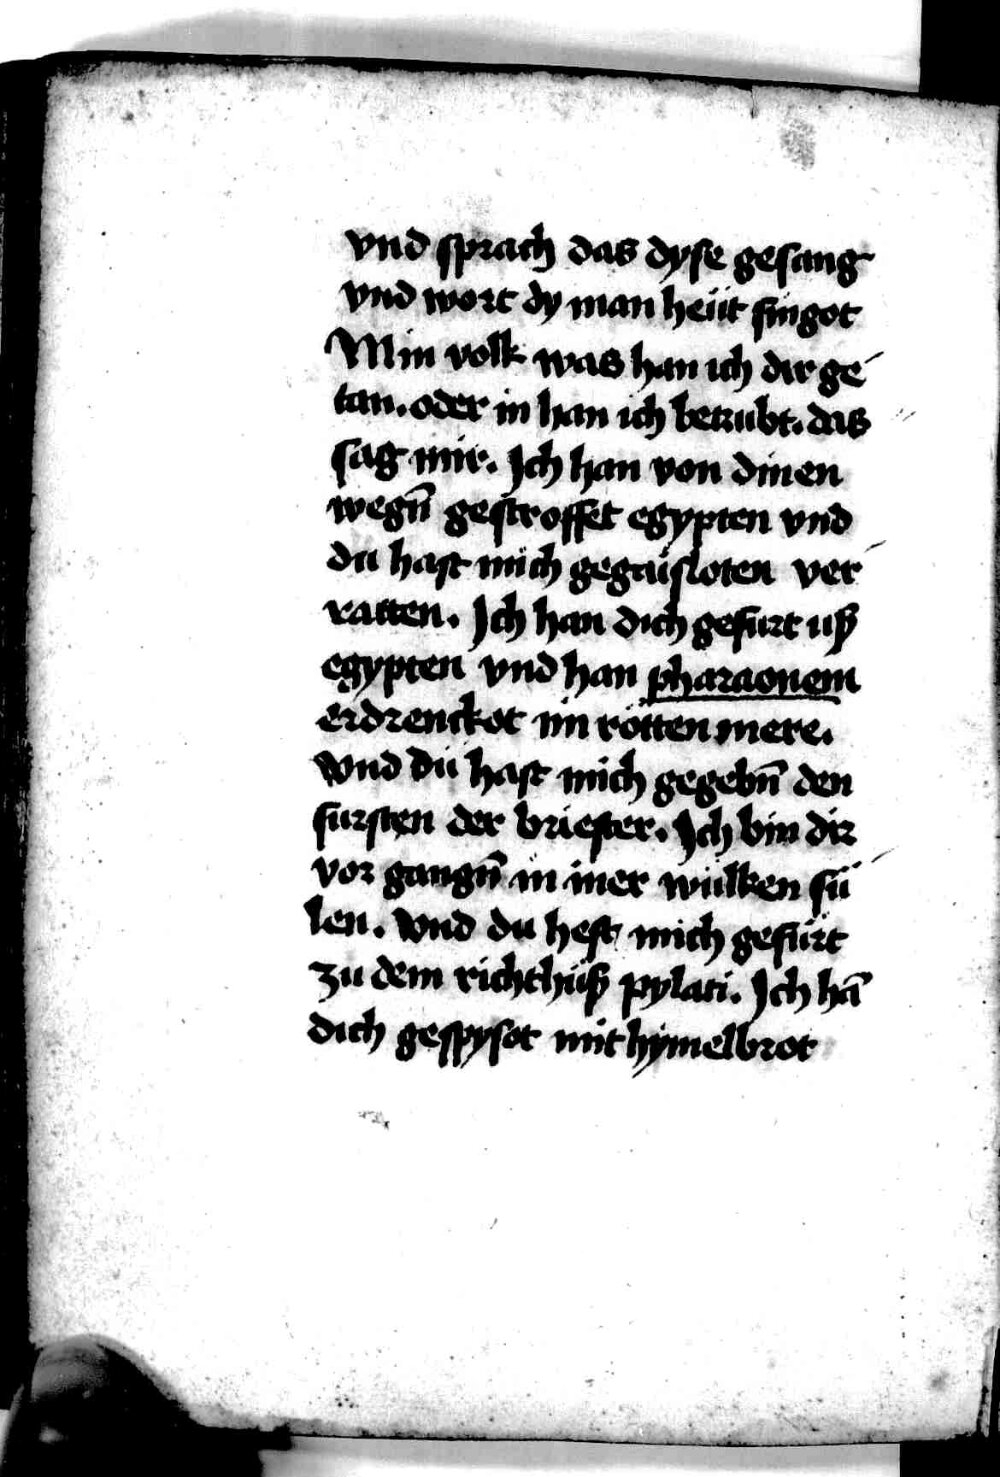 vnd sprach das dyse gesang
vnd wort dy man heüt singot
Min volk was han ich dir ge
tan. oder in han ich betrubt. das
sag mir. Ich han von dinen
wegn̄ gestroffet egypten vnd
du hast mich gegaüsloten ver
ratten. Ich han dich gefurt uß
egypten vnd han pharaonem
erdrenckot im rötten mere.
Vnd dü hast mich gegebn̄ den
fursten der briester. Ich bin dir
vor gangn̄ in iner wülken sü
len. Vnd du hest mich gefürt
zu dem richthüß pylati. Ich hā
dich gespysot mit hymelbrot